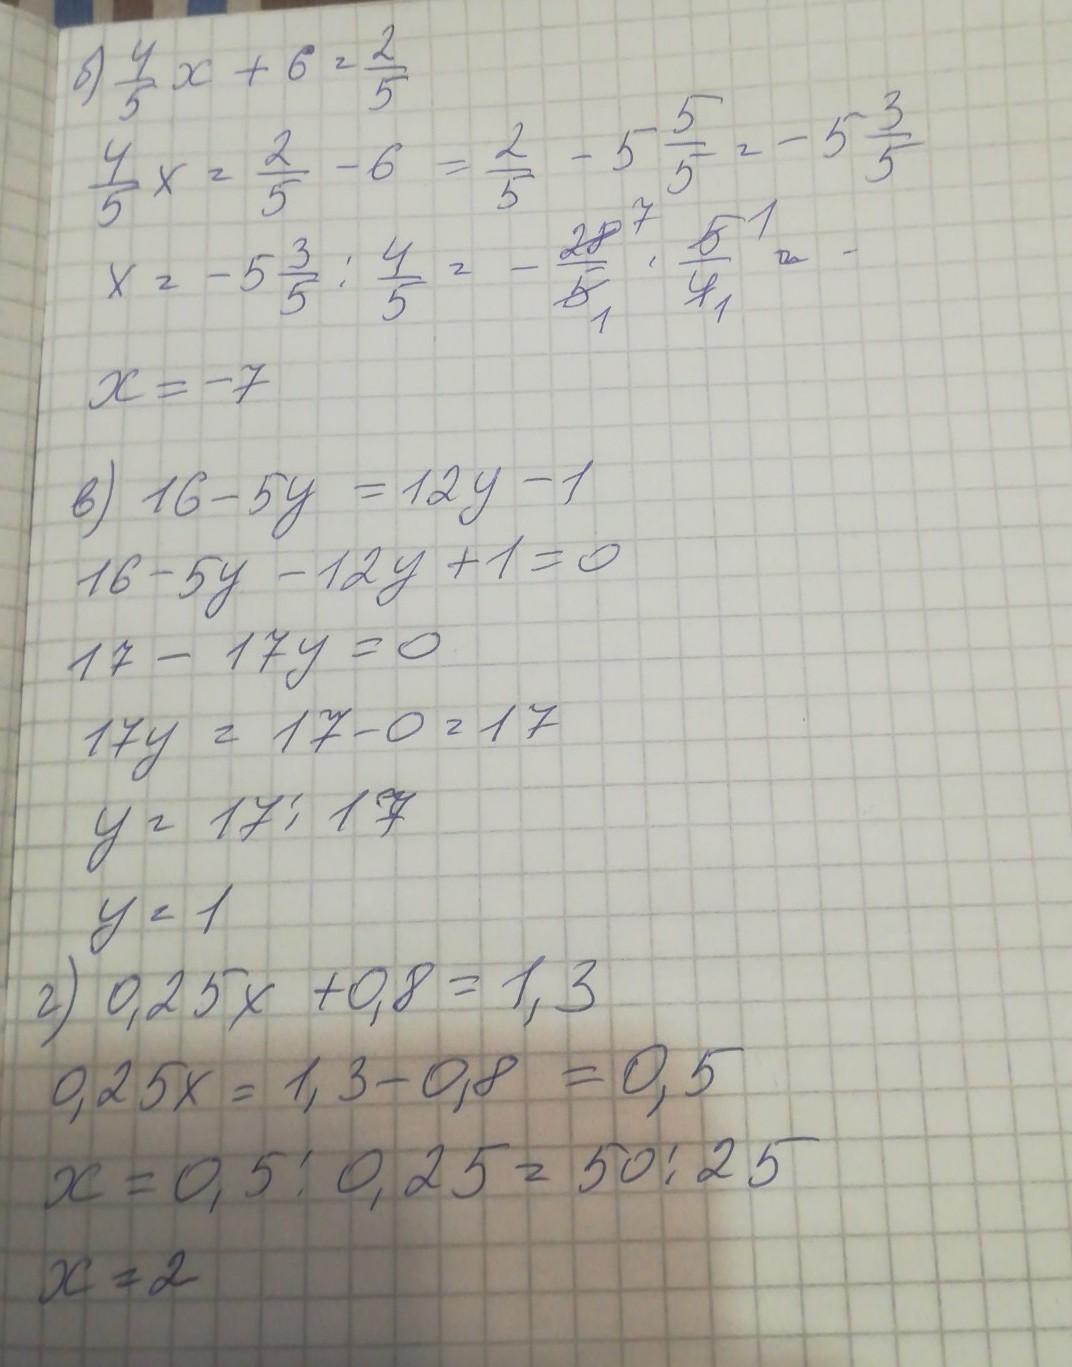 б) 4/5 x + 6 = 2/5
4/5 x = 2/5 - 6 = 2/5 - 5 5/5 = - 5 3/5
x = - 5 3/5 : 4/5 = - 28/5 7 1 · 5/4 1 1 = -
x = -7
в) 16 - 5y = 12y - 1
16 - 5y - 12y + 1 = 0
17 - 17y = 0
17y = 17 - 0 = 17
y = 17 : 17
y = 1
г) 0,25x + 0,8 = 1,3
0,25x = 1,3 - 0,8 = 0,5
x = 0,5 : 0,25 = 50 : 25
x = 2